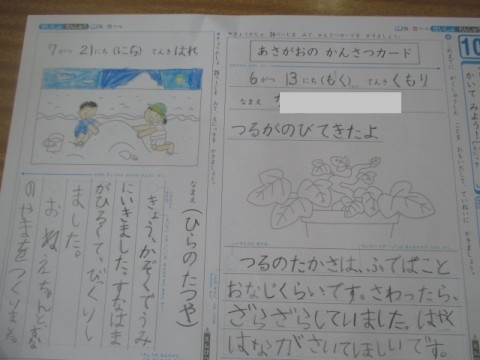 7がつ 21にち(にち) てんき はれ
なまえ(ひらのたつや)
きょう、かぞくでうみ
にいきました。すなはま
がひろくて、びっくりし
ました。
おねえちゃんと、すな
のやまをつくりました。
あさがおの かんさつカード
6がつ 13にち(もく) てんき くもり
なまえ
つるがのびてきたよ
つるのたかさは、ふでばこと
おなじくらいです。さわったら、
ざらざらしていました。はやく
はながさいてほしいです。
10
かいてみよう!